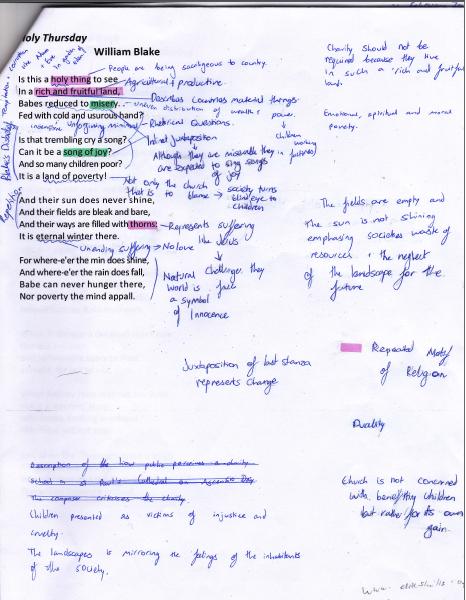 Holy Thursday
William Blake
Is this a holy thing to see
In a rich and fruitful land,
Babes reduced to misery.
Fed with cold and usurous hand?
Is that trembling cry a song?
Can it be a song of joy?
And so many children poor?
It is a land of poverty!
And their sun does never shine,
And their fields are bleak and bare,
And their ways are filled with thorns:
It is eternal winter there.
For where-e'er the min does shine,
And where-e'er the rain does fall,
Babe can never hunger there,
Nor poverty the mind appall.
People are being sacrilegious to country.
Agricultural + productive.
Describes Countries material things.
uneven distribution of wealth + power.
Rhetorical Questions.
Intend juxtaposition
children
working
Although they are miserable they
are expected to sing songs
of joy
Not only the church
that is to blame → society turns
blind eye to
children
Represents suffering
like Jesus
Unending suffering → No love
Natural Challenge, they
world is free
a symbol
of Innocence
Charity should not be
required because they live
in such a 'rich and fruitful
land.
Emotional, spiritual and moral
poverty.
The fields are empty and
The sun is not shining
emphasing societies waste of
resources + the neglect
of the landscape for the
future
Juxtaposition of last stanza
represents change
Repeated Motif
of Religion
Duality
Church is not concerned
with benefitting children
but rather for its own
gain.
Description of the how public perceives a charity
The composer criticises the charity
Children presented as victims of injustice and
cruelty.
The landscapes is mirroring the feelings of the inhabitants
of the society.